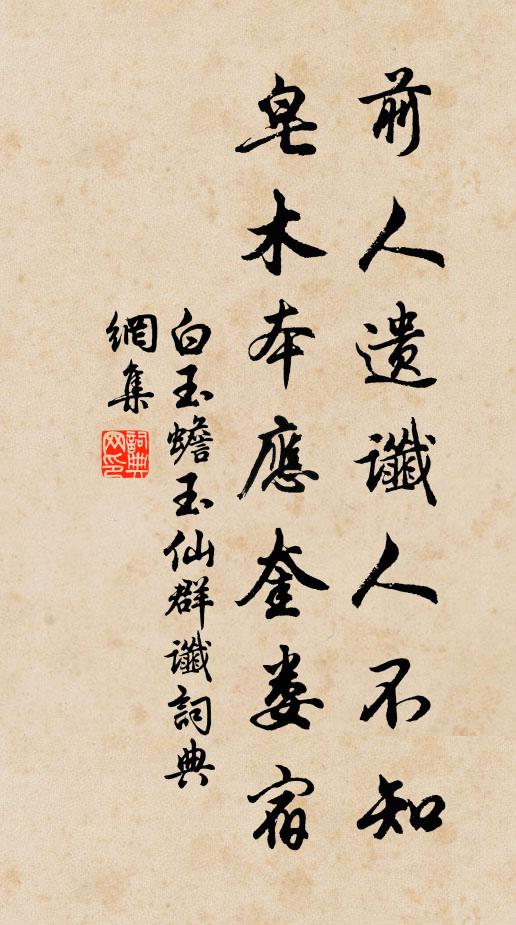 前人遗讖人不知
皂木本應奎娄宿
白玉蟾玉仙群讖詞典
網集
詞典
网印